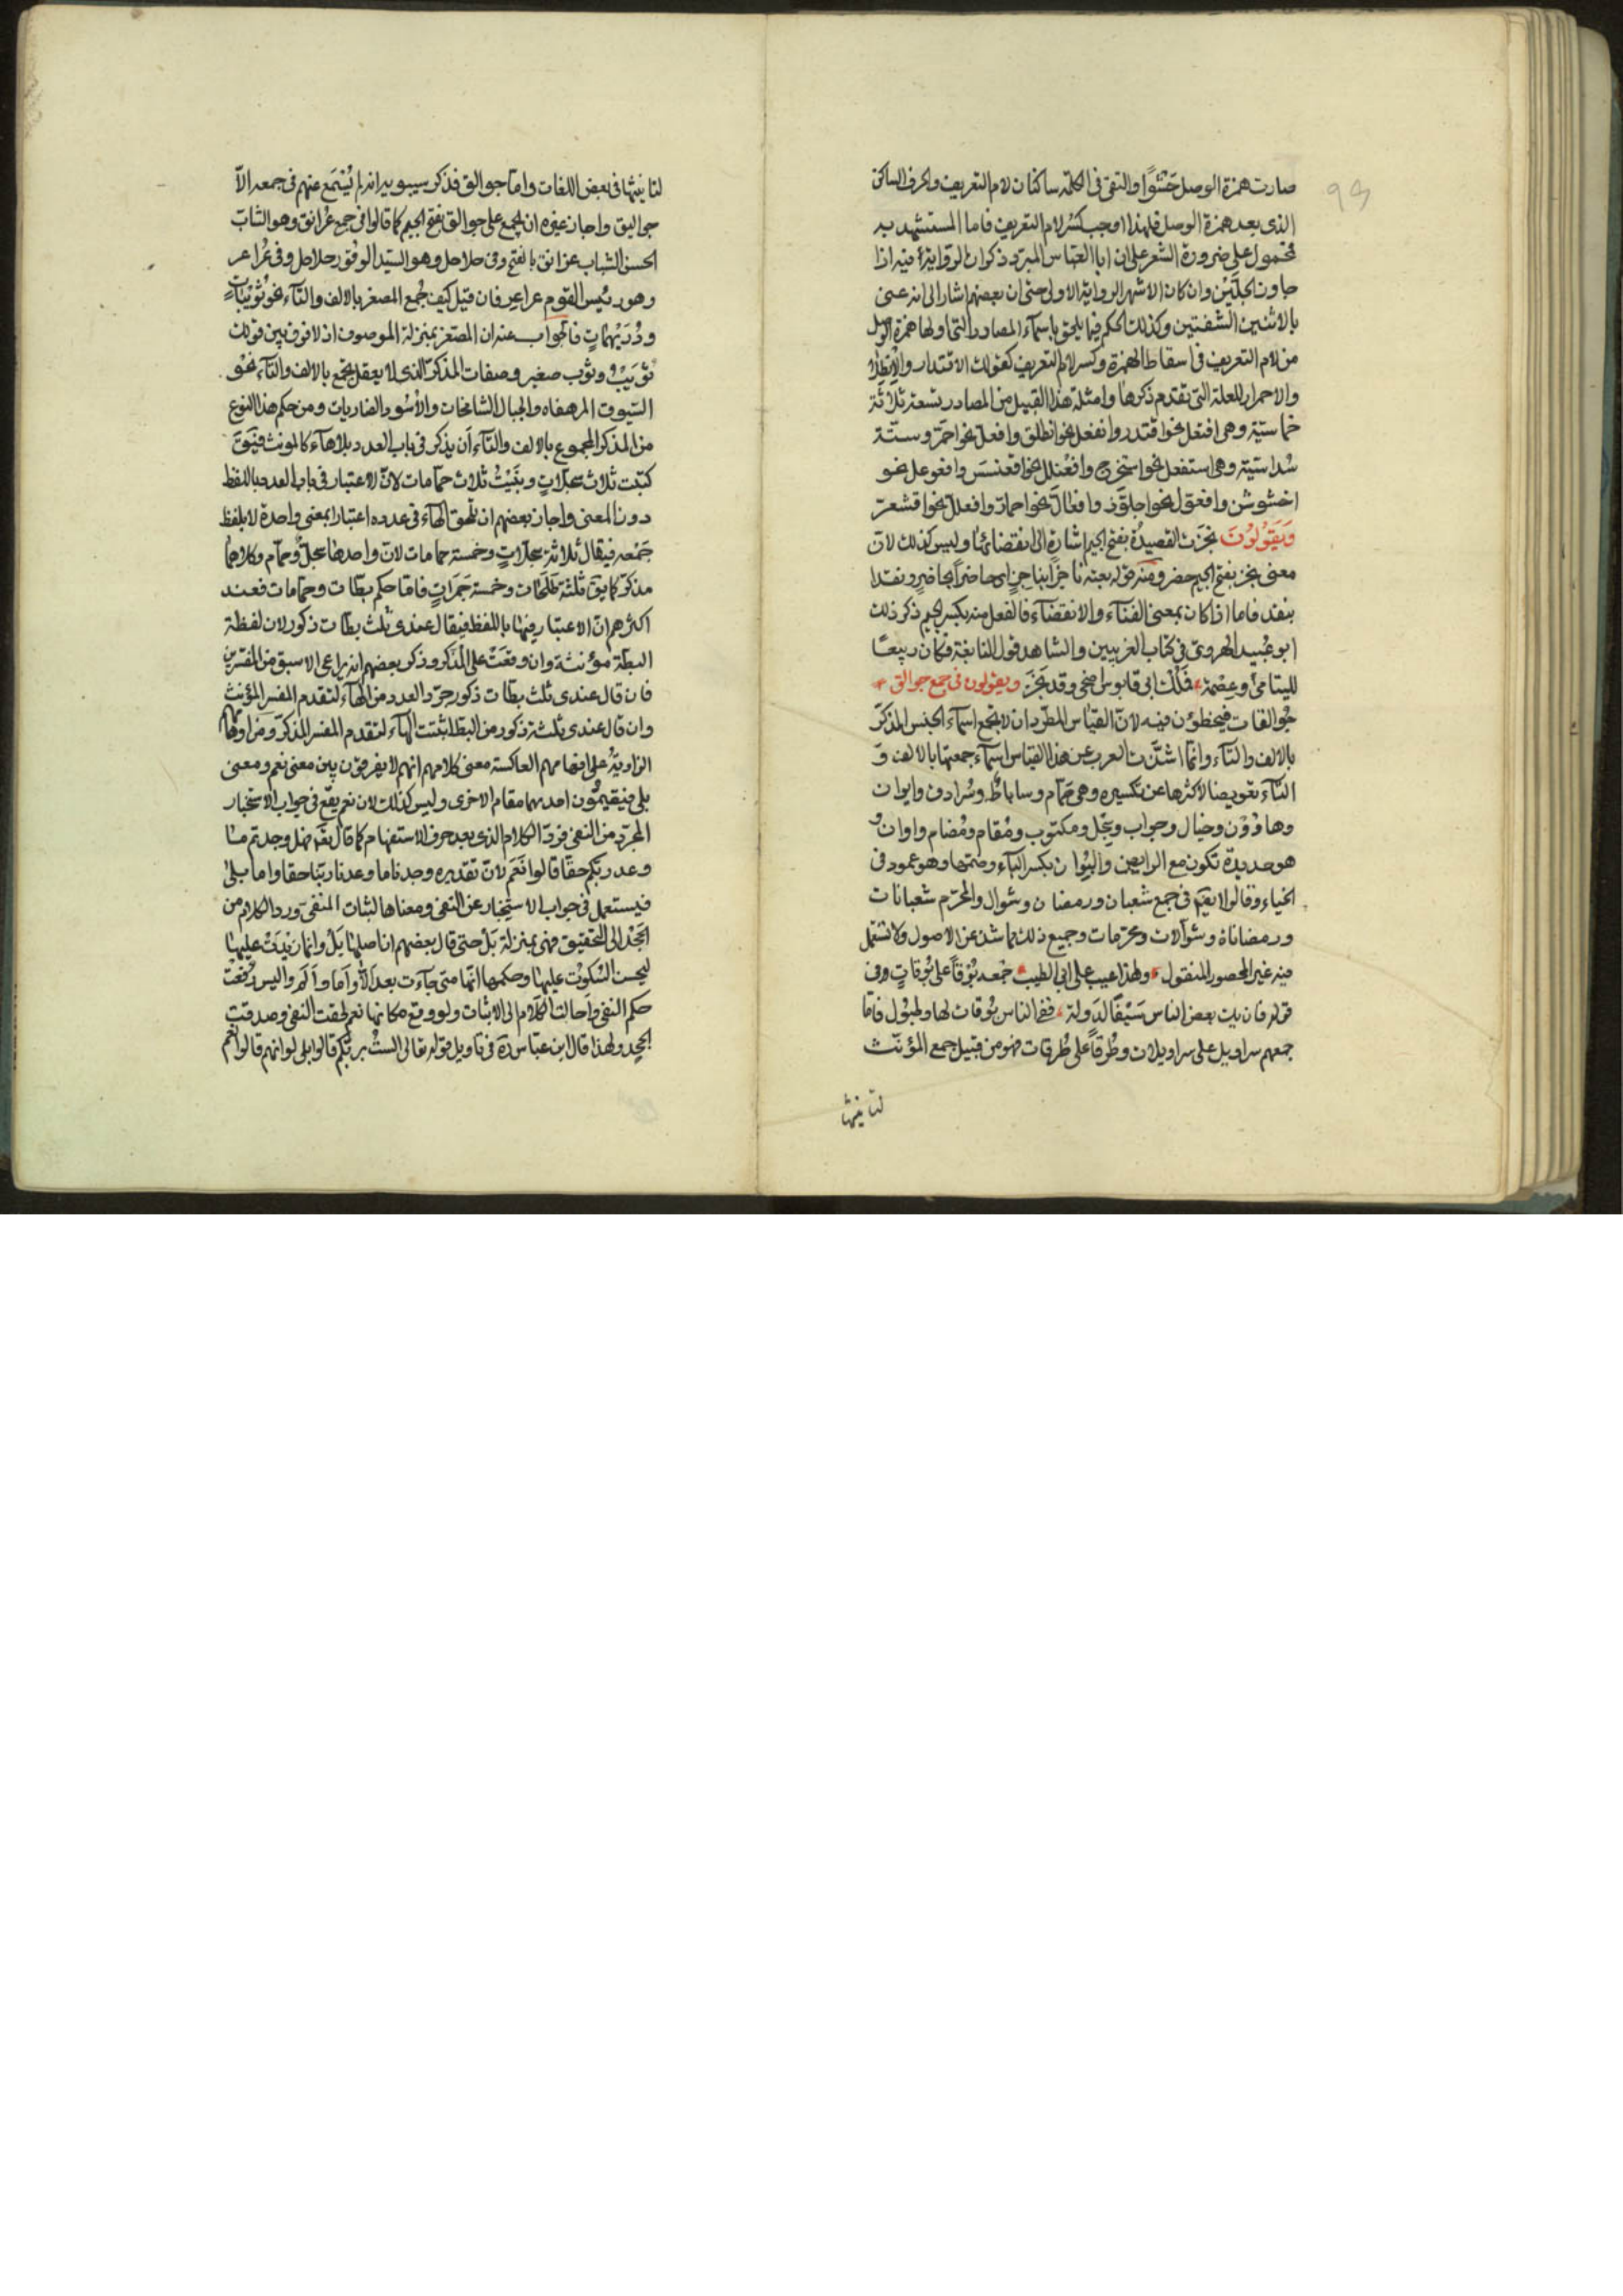 صارت همزة الوصل حَشْوًا والتقى فى الكلمة ساكنان لام التعريف والحرف الساكن
الذى بعد همزة الوصل فلهذا اوجب كَسْر لام التعريف فاما المستشهد به
فمحمول على ضرورة الشعر على ان ابا العباس المبرّد ذكر ان الرواية فيه اذا
جاوز الخِلَّيْن وان كان الاشهر الرواية الاولى حتى ان بعضهم اشار الى انه عنى
بالاثنين الشفتين وكذلك الحكم فيما يلحق باسمآء المصادر التى اولها همزة الوصل
من لام التعريف فى اسقاط الهمزة وكسر لام التعريف كقولك الاقتدار والانطلاق
والاحمرار للعلة التى تقدم ذكرها وامثلة هذا القبيل من المصادر تسعة ثلاثة
خماسيّة وهى افتعل نحو اقتدر وانفعل نحو انطلق وافعلّ نحو احمرّ وستّة
سُداسيّة وهى استفعل نحو استخرج وافعنلل نحو اقعنسس وافعوعل نحو
اخشوشن وافعوّل نحو اجلوّذ وافعالّ نحو احمارّ وافعللّ نحو اقشعرّ
وَيَقوُلوُنَ نجزَت القصيدةُ بفتح الجيم اشارة الى انقضائها وليس كذلك لانّ
معنى نجز بفتح الجيم حضر ومنه قوله بعته ناجزًا بناجزٍ اى حاضراً بحاضرٍ ونقدا
بنقد فاما اذا كان بمعنى الفنآء والانقضآء فالفعل منه بكسر الجيم ذكر ذلك
ابو عُبيد الهروىّ فى كتاب الغريبين والشاهد قول النابغة فكان ربيعًا
لليتامى وعِصْمة، فَمُلْك ابى قابوس اضحى وقد نَجَزَ ويقولون فى جمع جوالق
جُوالقات فيخطؤن فيه لانّ القياس المطّرد ان لا يجمع اسمآء الجنس المذكّر
بالالف والتآء وانما اشذّت العرب عن هذا القياس اسمآء جمعتها بالالف و
التآء تعويضا لاكثرها عن تكسيره وهى حمّام وساباط وسُرادق وايوان
وهاوُوْن وخيال وجواب وسِجّل ومكتوب ومُقام ومُضام واوان و
هو حديدة تكون مع الرايض والبُوان بكسر البآء وضمّها وهو عمود فى
الخباء وقالوا ايضًا فى جمع شعبان ورمضان وشوال والمحرّم شعبانات
ورمضانات وشوّالات ومحرّمات وجميع ذلك مما شذ عن الاصول ولا تستعمل
فيه غير المحصور المنقول ولهذا عيب على ابى الطيب جَمْعه بُوْقًا على بُوقاتٍ وفى
قوله فان يك بعض الناس سَيْفًا لِدَولة، ففى الناس بُوقات لها وطُبُول فامّا
جمعهم سراويل على سراويلات وطُرقاً على طُرقات فهو من قبيل جمع المؤنّث
لتانيثها
لتانيثها فى بعض اللغات وامّا جوالق فذكر سيبويه انه لم يُسْمَع عنهم فى جمعه الاّ
جواليق واجاز غيره ان يجمع على جَوالق بفتح الجيم كما قالوا فى جمع غُرانق وهو الشابّ
الحسن الشباب غرانق بالفتح وفى حلاحل وهو السيّد الوقور حلاحل وفى عُراعر
وهو رئيس القوم عراعِر فان قيل كيف جُمع المصغر بالالف والتّآء نحو ثُوَيْبَاتٍ
ودُرَيْهِمَاتٍ فالجواب عنه ان المصغّر بمنزلة الموصوف اذ لا فرق بين قولك
ثُوَيْبٌ وثوب صغير وصفات المذكّر الذى لا يعقل يجمع بالالف والتآء نحو
السّيوف المرهفاه والجبال الشامخات والأسُود الضاريات ومن حكم هذا النوع
من المذكر المجموع بالالف والتّآء أن يذكر فى باب العدد بلا هآء كالمونث فيَق
كتبت ثلاث سجلّاتٍ وبَنَيْتُ ثلاث حمّامات لانّ الاعتبار فى باب العدد باللفظ
دون المعنى واجاز بعضهم ان تلحق الهآء فى عدده اعتبارا بمعنى واحدة لا بلفظ
جَمْعه فيقال ثلاثة سجلّاتٍ وخمسة حمّامات لانّ واحدهما سجلّ وحمّام وكلاهما
مذكّر كما يق ثلثة طَلَحات وخمسة حَمَزاتٍ فامّا حكم بطّات وحمامات فعند
اكثرهم انّ الاعتبار فيها باللفظ فيقال عندى ثلث بطّات ذكور لان لفظة
البطّة مؤنثة وان وقعَتْ على المذكر وذكر بعضهم انه يراعى الاسبق من المفسّرين
فان قال عندى ثلث بطّات ذكور جرّد العدد من الهآء لتقدم المفسر المؤنث
وان قال عندى ثلثة ذكور من البط اثبتت الهآء لتقدم المفسر المذكّر ومن اوهامهم
الزاوِيةُ على افهامهم العاكسة معنى كلامهم انهم لا يفرقون بين معنى نعم ومعنى
بلى فيقيمُون احدهما مقام الاخرى وليس كذلك لان نعم يقع فى جواب الاستخبار
المجرّد من النفى فردّ الكلام الذى بعد حرف الاستفهام كما قال تعَم فهل وجدتم ما
وعد ربّكم حقّا قالوا نَعَم لانّ تقديره وجدنا ما وعدنا ربّنا حقا واما بلىٰ
فيستعمل فى جواب الاستخبار عن النفى ومعناها اثبات المنفىّ ورد الكلام من
الجَحْد الى التحقيق فهى بمنزلة بَلْ حتى قال بعضهم ان اصلها بَلْ وانما زِيدَتْ عليها
ليحسن السّكوتُ عليها وحكمها انّها متى جآءت بعد الاَ وأما وألم واليس رفعَتْ
حكم النفى وَاَحالت الكَلام الى الاثبات ولو وقع مكانها نعم لحققت النفى وصدقتِ
الجحد ولهذا قال ابن عبّاس رَه فى تاويل قوله تعالى الستُ بربّكم قالوا بلى لو انهم قالوا نعَم